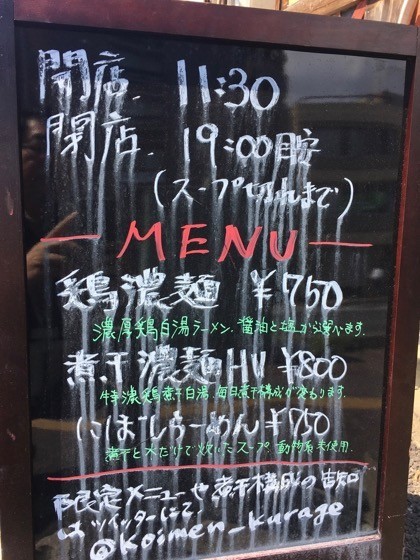 開店. 11:30
閉店. 19:00目安
(スープ切れまで)
MENU
鶏濃麺 ¥750
濃厚鶏白湯ラーメン. 醤油と塩から選べます.
煮干濃麺HV ¥800
特濃鶏煮干白湯. 毎日煮干構成が変わります.
にぼしらーめん ¥750
煮干と水だけで炊いたスープ 動物系未使用.
限定メニューや煮干構成の告知
はツイッターにて.
@koimen_kurage